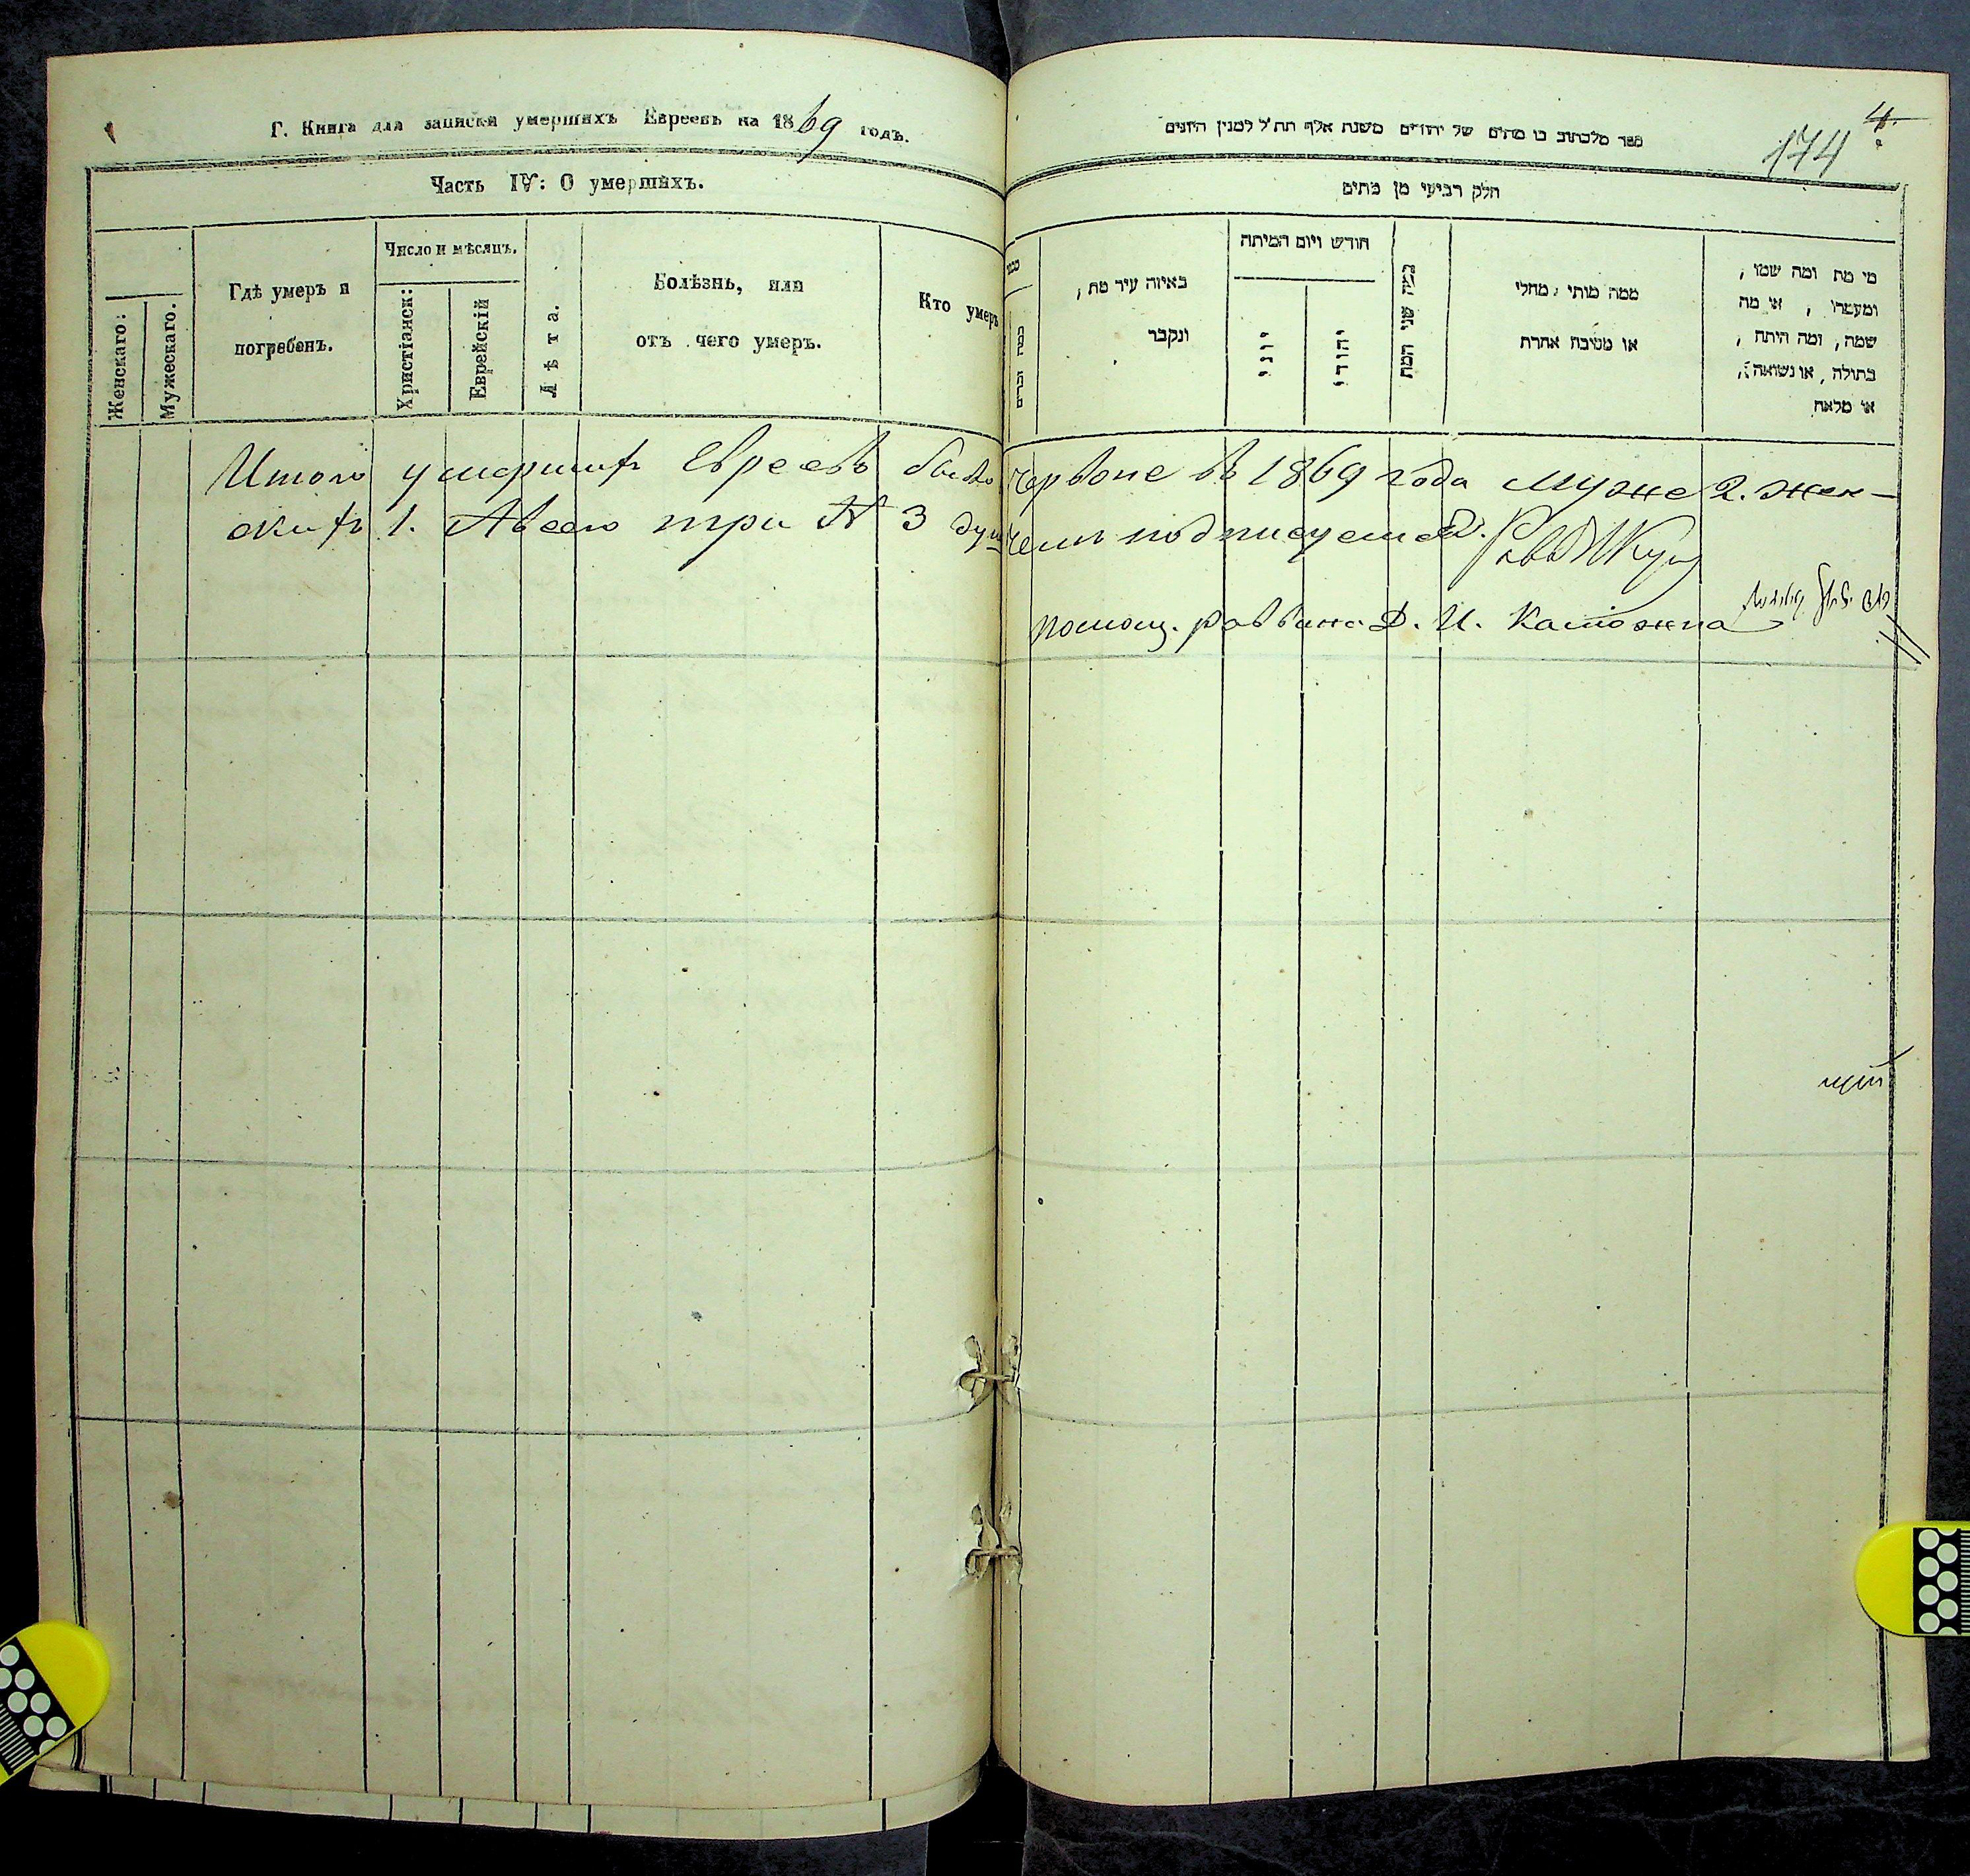 Г. Книга для записки умершихъ Евреевъ на 1869 годъ.
Часть IV: О умершихъ.
Женскаго:
Мужескаго.
Гдѣ умеръ и
погребенъ.
Число и мѣсяцъ.
Христіанск:
Еврейскій
Лѣта.
Болѣзнь, или
отъ чего умеръ.
Кто умеръ
ספר מלכתוב בו מתים של יהודים משנת אלף תת״ל למנין היונים
174
4.
חלק רביעי מן מתים
כמה זכרים
באיזה עיר מת,
ונקבר
חודש ויום המיתה
יוני
יהודי
כמה שני המת
ממה מותי, מחלי
או מסיבה אחרת
מי מת ומה שמו,
ומעמדו, או מה
שמה, ומה היתה,
בתולה, או נשואה,
או מלאה
Итого умершихъ Евреевъ было Червоне въ 1869 года муже 2. жен-
скихъ 1. А всего три № 3 душ чемъ подписуемся.
помощ. раввина Д. И.